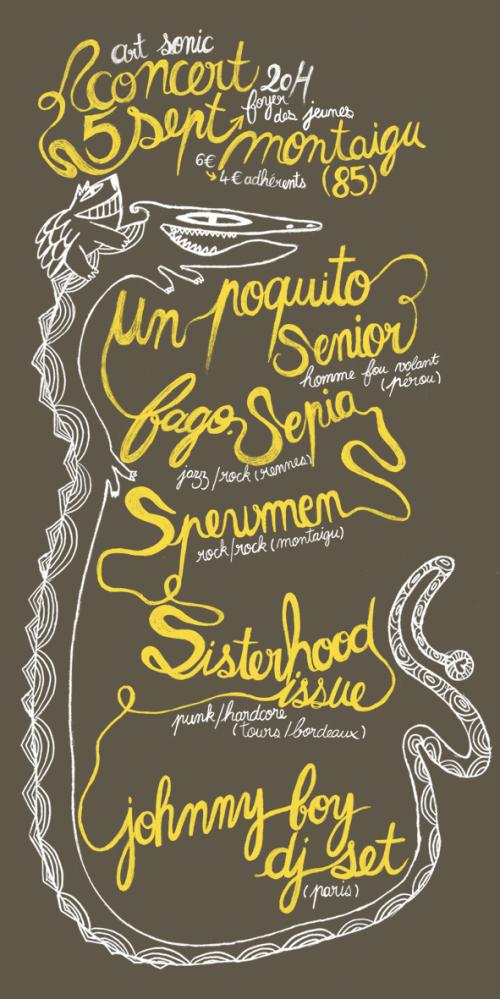 art sonic
concert
20H
5 sept
foyer
des jeunes
montaigu
6€
4€ adhérents
(85)
un poquito
Senior
homme fou volant
(pérou)
fago. Sepia
jazz/rock (rennes)
Spermen
rock/rock (montaigu)
Sisterhood
issue
punk/hardcore
(tours/bordeaux)
johnny boy
dj set
(paris)